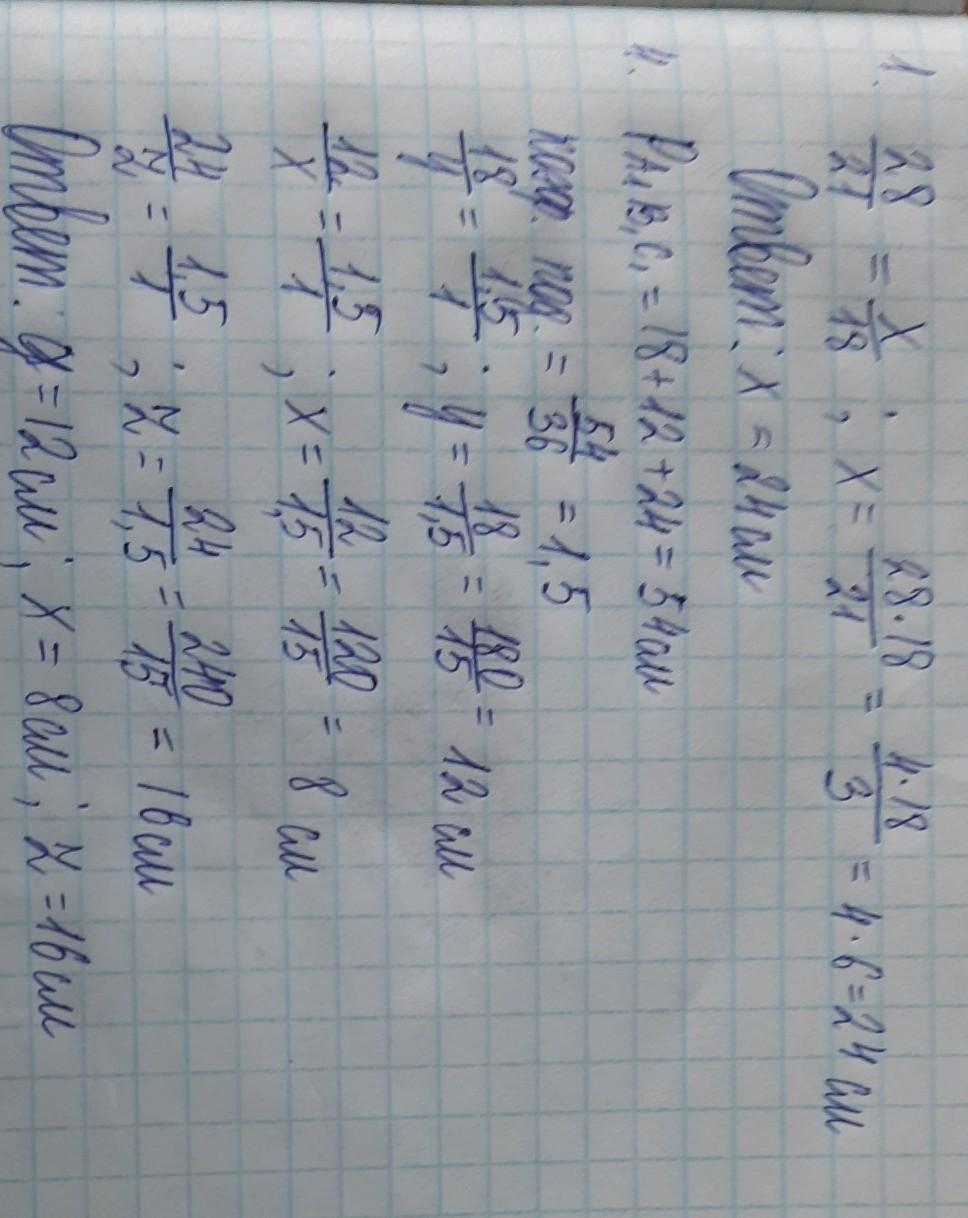 1. 28/21 = x/18 ; x = 28·18/21 = 4·18/3 = 4·6 = 24 см
Ответ: x = 24 см
4. PA₁B₁C₁ = 18+12+24 = 54 см
коэф. под. = 54/36 = 1,5
18/y = 1,5/1 ; y = 18/1,5 = 180/15 = 12 см
12/x = 1,5/1 ; x = 12/1,5 = 120/15 = 8 см
24/z = 1,5/1 ; z = 24/1,5 = 240/15 = 16 см
Ответ: y = 12 см; x = 8 см; z = 16 см